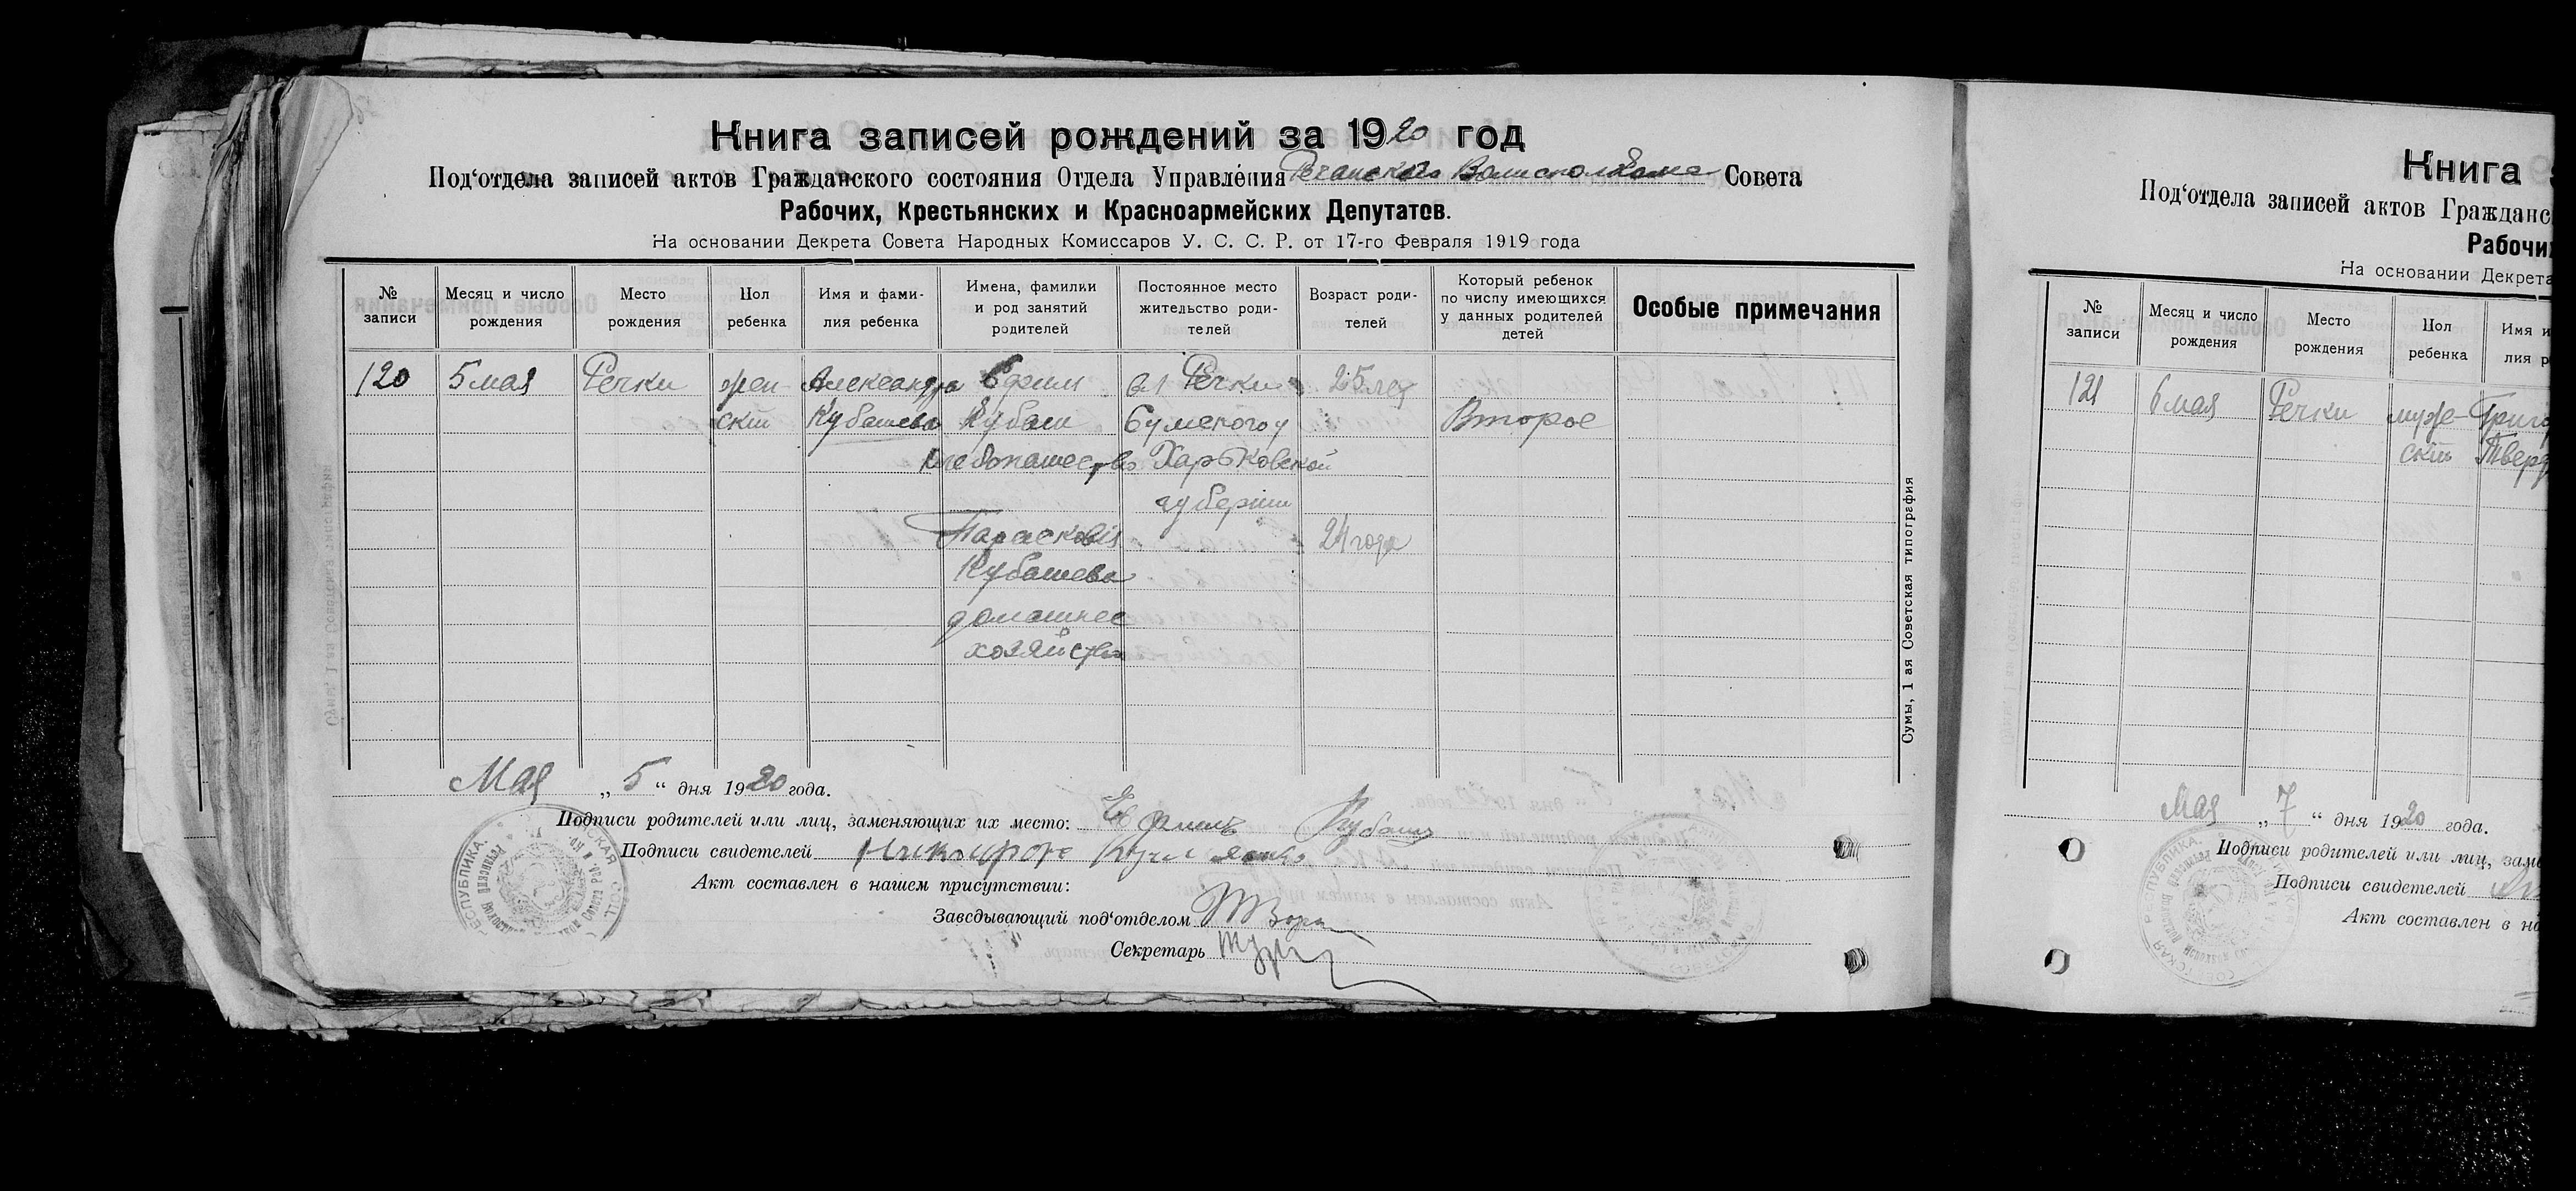 Книга записей рождений за 1920 год
Под‘отдела записей актов Гражданского состояния Отдела Управления Речанского Волисполкома Совета
Рабочих, Крестьянских и Красноармейских Депутатов.
На основании Декрета Совета Народных Комиссаров У. С. С. Р. от 17-го Февраля 1919 года
№ записи
Месяц и число рождения
Место рождения
Пол ребенка
Имя и фами-
лия ребенка
Имена, фамилии
и род занятий
родителей
Постоянное место
жительство роди-
телей
Возраст роди-
телей
Который ребенок
по числу имеющихся
у данных родителей
детей
Особые примечания
120
5 мая
Речки
жен-
ский
Александра
Кубашева
Ефим
Кубаш
хлебопашество
Парасковія
Кубашева
домашнее
хозяйство
сл Речки
Сумского у
Харьковской
губернии
25 лет
24 года
Второе
Мая „ 5 “ дня 1920 года.
Подписи родителей или лиц, заменяющих их место: Ефимъ Кубашъ
Подписи свидетелей
Акт составлен в нашем присутствии:
Заведывающий под‘отделом
Секретарь
Сумы, 1 ая Советская типография
Книга
Под‘отдела записей актов Гражданс
Рабочи
На основании Декрета
№ записи
Месяц и число рождения
Место рождения
Пол ребенка
Имя и
лия р
121
6 мая
Речки
муж-
ский
Григо
Твер
Мая „ 7 “ дня 1920 года.
Подписи родителей или лиц, заме
Подписи свидетелей
Акт составлен в на